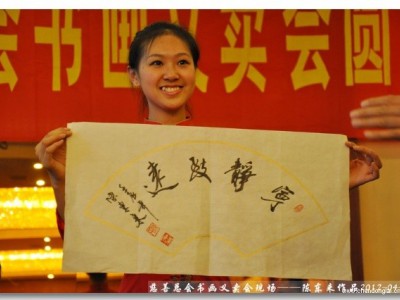 会书画义卖会圆
寧靜致遠
慈善总会书画义卖会现场——陈东来作品2012.04